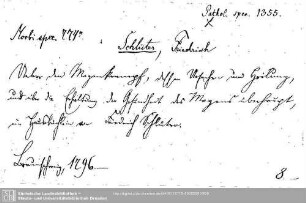 Pathol. spec. 1355.
Morbi spec. 771ᵈ.
Schlüter, Friedrich
Ueber den Magenkrampf, dessen Ursachen und Heilung,
und über die Erhaltung der Gesundheit des Magens überhaupt,
ein Hausbüchlein von Friedrich Schlüter.
Braunschweig, 1796
8
Sächsische Landesbibliothek -
Staats- und Universitätsbibliothek Dresden